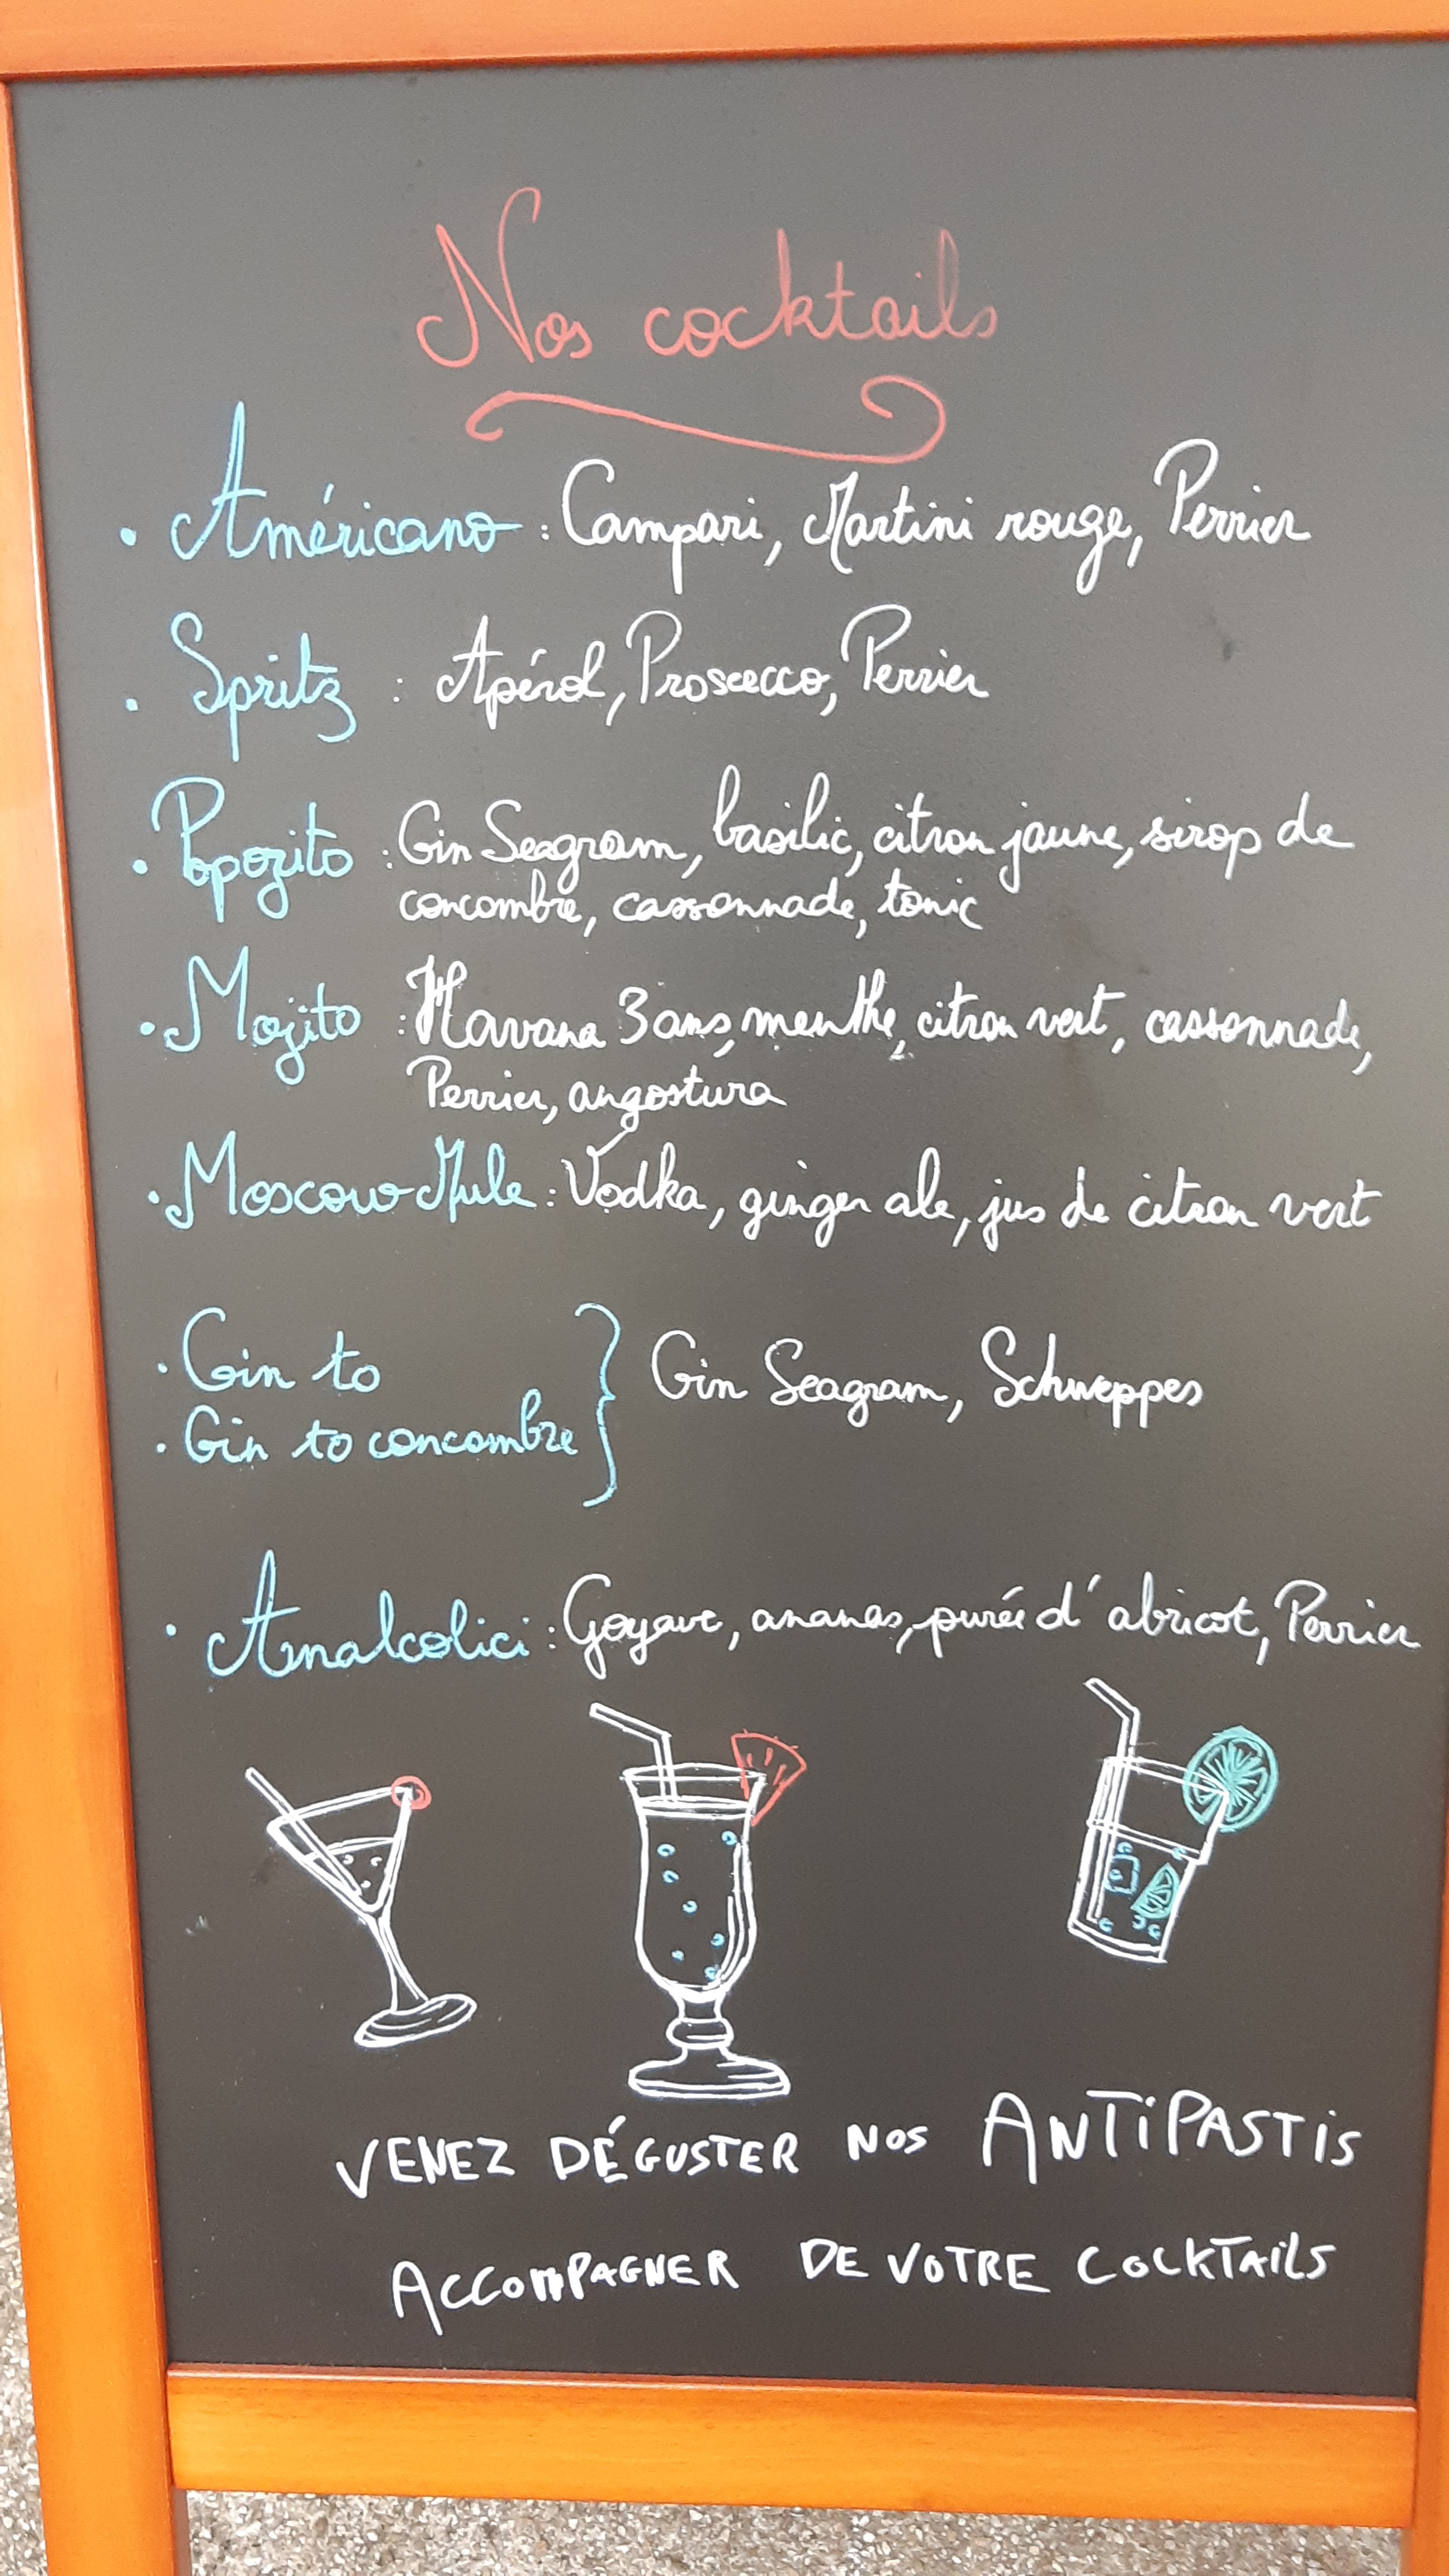 Nos cocktails
• Américano : Campari, Martini rouge, Perrier
• Spritz : Apérol, Prosecco, Perrier
• Popozito : Gin Seagram, basilic, citron jaune, sirop de
concombre, cassonnade, tonic
• Mojito : Havana 3 ans, menthe, citron vert, cassonnade,
Perrier, angostura
• Moscow Mule : Vodka, ginger ale, jus de citron vert
• Gin to
• Gin to concombre } Gin Seagram, Schweppes
• Analcolici : Goyave, ananas, purée d'abricot, Perrier
VENEZ DÉGUSTER NOS ANTIPASTIS
ACCOMPAGNER DE VOTRE COCKTAILS